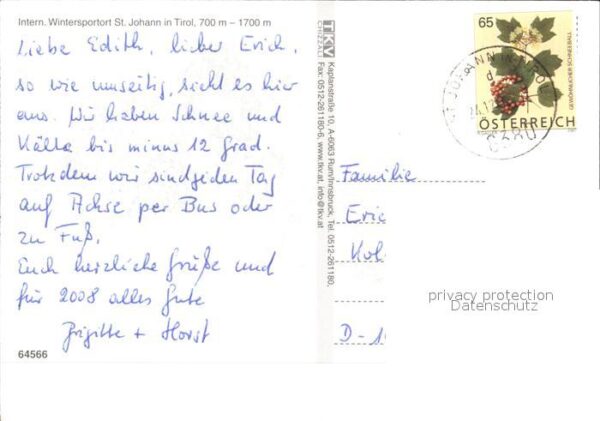 Intern. Wintersportort St. Johann in Tirol, 700 m – 1700 m
Liebe Edith, lieber Erich,
so wie umseitig, sieht es hier
aus. Wir haben Schnee und
Kälte bis minus 12 Grad.
Trotzdem wir sind jeden Tag
auf Achse per Bus oder
zu Fuß.
Euch herzliche Grüße und
für 2008 alles Gute
Brigitte + Horst
64566
TKV
CHIZZALI
Kaplanstraße 10, A-6063 Rum/Innsbruck, Tel. 0512-261180,
Fax: 0512-261180-6, www.tkv.at, info@tkv.at
65
GEWÖHNLICHER SCHNEEBALL
ÖSTERREICH
ST. JOHANN IN TIROL
d
6380
Familie
Eric
Kol
D-1
privacy protection
Datenschutz